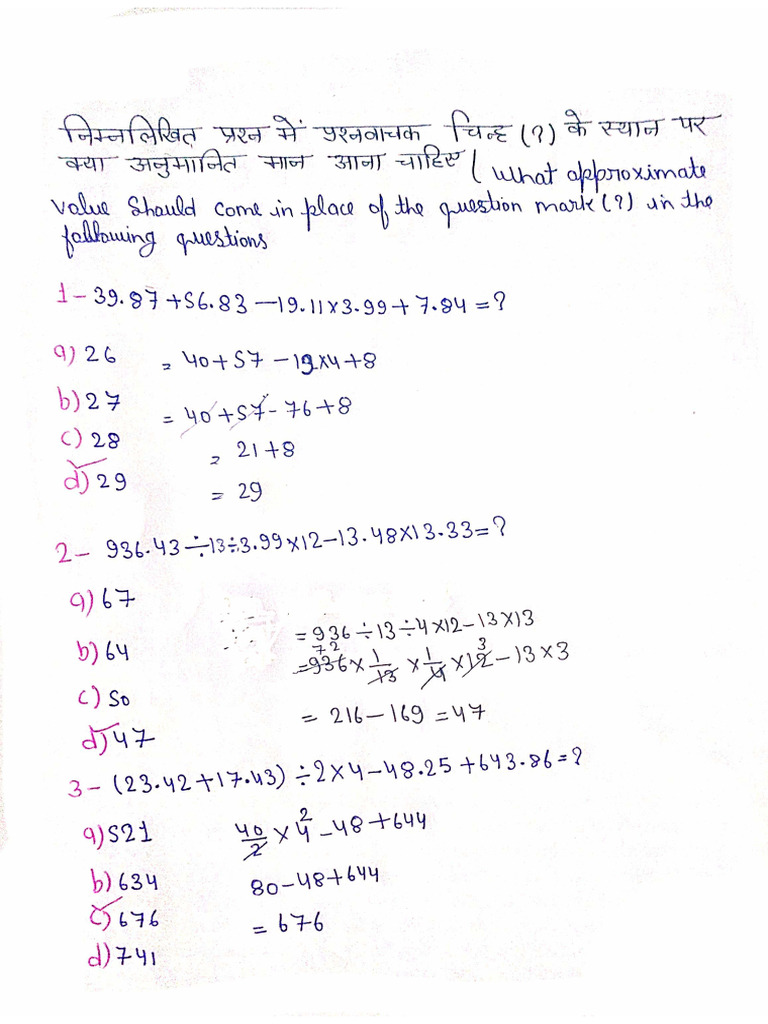 निम्नलिखित प्रश्न में प्रश्नवाचक चिन्ह (?) के स्थान पर
क्या अनुमानित मान आना चाहिए ( What approximate
value Should come in place of the question mark (?) in the
following questions
1 - 39.87 + 56.83 - 19.11 x 3.99 + 7.84 = ?
a) 26 = 40 + 57 - 19 x 4 + 8
b) 27 = 40 + 57 - 76 + 8
c) 28 = 21 + 8
d) 29 = 29
2 - 936.43 ÷ 13 ÷ 3.99 x 12 - 13.48 x 13.33 = ?
a) 67
= 936 ÷ 13 ÷ 4 x 12 - 13 x 13
b) 64 = 72 936 x 1/13 x 1/4 x 12 3 - 13 x 3
c) 50 = 216 - 169 = 47
d) 47
3 - (23.42 + 17.43) ÷ 2 x 4 - 48.25 + 643.86 = ?
a) 521 40/2 x 4 2 - 48 + 644
b) 634 80 - 48 + 644
c) 676 = 676
d) 741